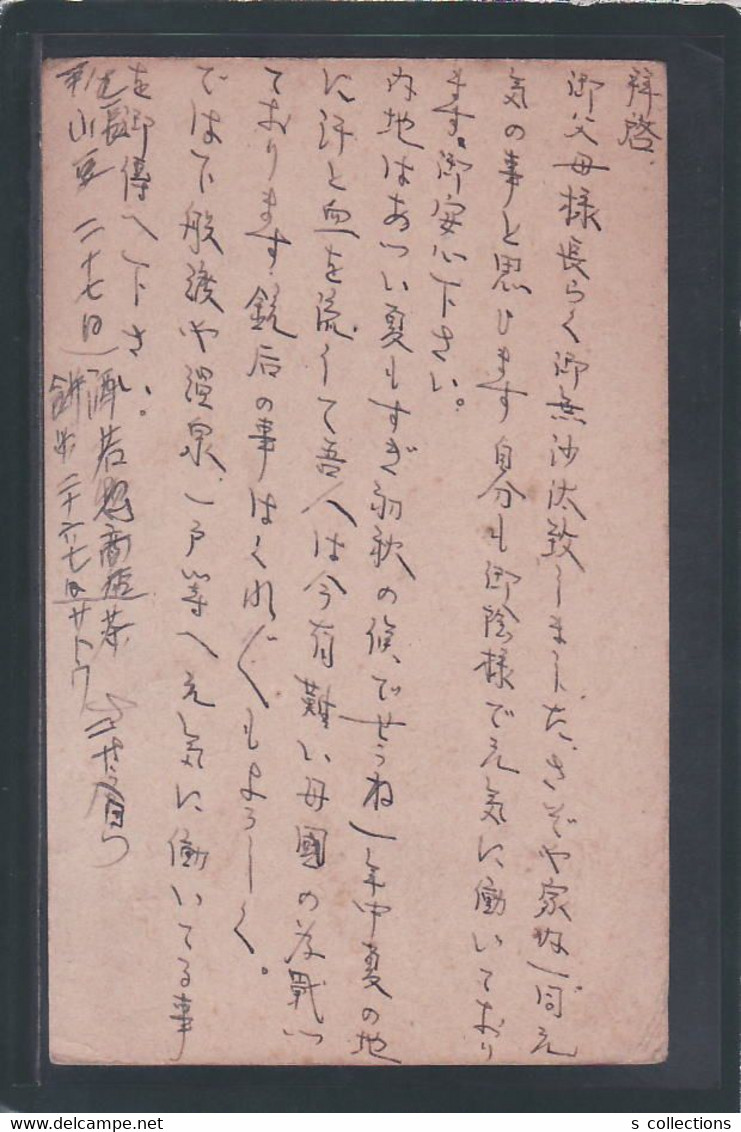 拝啓
御父母様長らく御無沙汰致しました、さぞや家内一同元
気の事と思ひます自分も御陰様で元気に働いており
ます。御安心下さい。
内地はあつい夏もすぎ初秋の候、でせうね一年中夏の地
に汗と血を流して吾人は今有難い母國の為戰つ
ております銃后の事はくれ〲もよろしく。
では下般渡や温泉、一戸等へ元気に働いてる事
を御傳へ下さい。
二十七日
サトウ
s collections